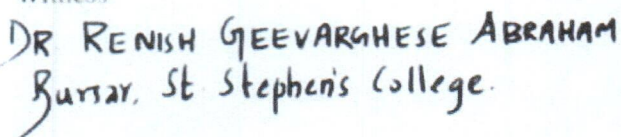 Witness
DR RENISH GEEVARGHESE ABRAHAM
Bursar, St Stephen's College.